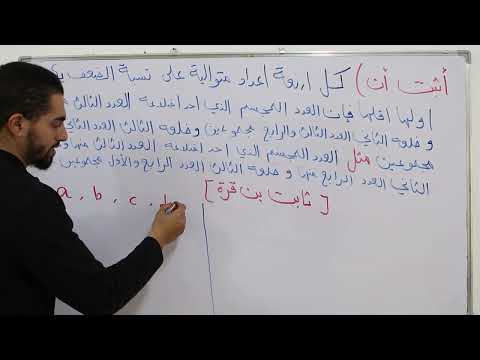 أثبت أن) كل أربعة أعداد متوالية على نسبة الضعف
أولها أقلها فإن العدد المجسم الذي احد اضلاعه العدد الثالث
و ضلعه الثاني العدد الثالث والرابع مجموعين وضلعه الثالث العدد الثاني
مجموعين مثل العدد المجسم الذي احد اضلاعه العدد الثالث منها و
الثاني العدد الرابع منها و ضلعه الثالث العدد الرابع والأول مجموعين
[ ثابت بن قرة ]
a , b , c , d